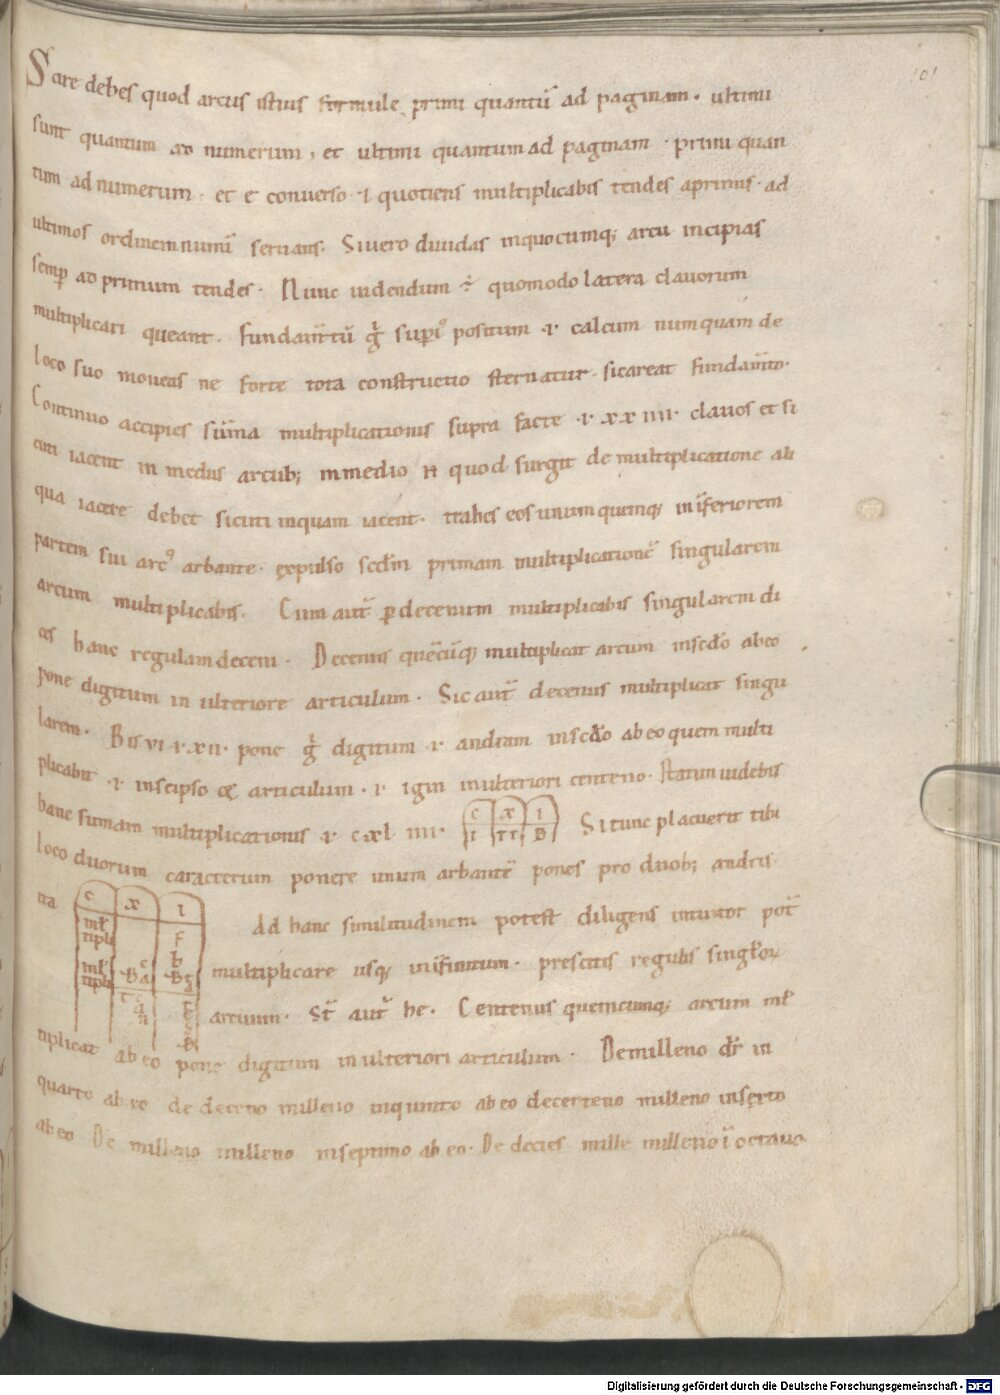 101
Scire debes quod arcus istius formule primi quantū ad paginam . ultimi
sunt quantum ad numerum , et ultimi quantum ad paginam . primi quan
tum ad numerum . et e converso . i quotiens multiplicabis tendes a primis . ad
ultimos ordinem numī servans . Si vero dividas in quocumq; arcu incipias
semp ad primum tendes . Nunc videndum ÷ quomodo latera clavorum
multiplicari queant . fundam̄tū supi° positum .i. calcum numquam de
loco suo moveas ne forte tota constructio sternatur . si careat fundam̄to .
Continuo accipies sūma multiplicationis supra facte .i. xx iiii . clavos et si
cuti iacent in mediis arcub; in medio n quod surgit de multiplicatione ali
qua iacere debet sicuti inquam iacent . trahes eos unumquemq; in īferiorem
partem sui arc9 arbante . expulso scd̄m primam multiplicationē singularem
arcum multiplicabis . Cum aut̄ p decenum multiplicabis singularem di
ces hanc regulam deceni . Decenus quēcūq; multiplicat arcum in scd̄o ab eo
pone digitum in ulteriore articulum . Sic aut̄ decenus multiplicat singu
larem . Bis vi .i. xii . pone digitum .i. andram in scd̄o ab eo quem multi
plicabit .i. in seipso articulum .i. igin in ulteriori centeno . Statim videbis
hanc sumam multiplicationis .i. c xl iiii . c x i Si tunc placuerit tibi
loco duorum caracterum ponere unum arbantē pones pro duob; andris
ita c x i Ad hanc similitudinem potest diligens intuitor
multiplicare usq; in īfinitum . prescitis regulis
arcuum . St̄ aut̄ he . Centenus quemcumq; arcum ml̄
tiplicat ab eo pone digitum in ulteriori articulum . De milleno dr̄ in
quarto ab eo de deceno milleno in quinto ab eo de centeno milleno in sexto
ab eo De milleno milleno in septimo ab eo . De decies mille milleno ī octavo
Digitalisierung gefördert durch die Deutsche Forschungsgemeinschaft - DFG